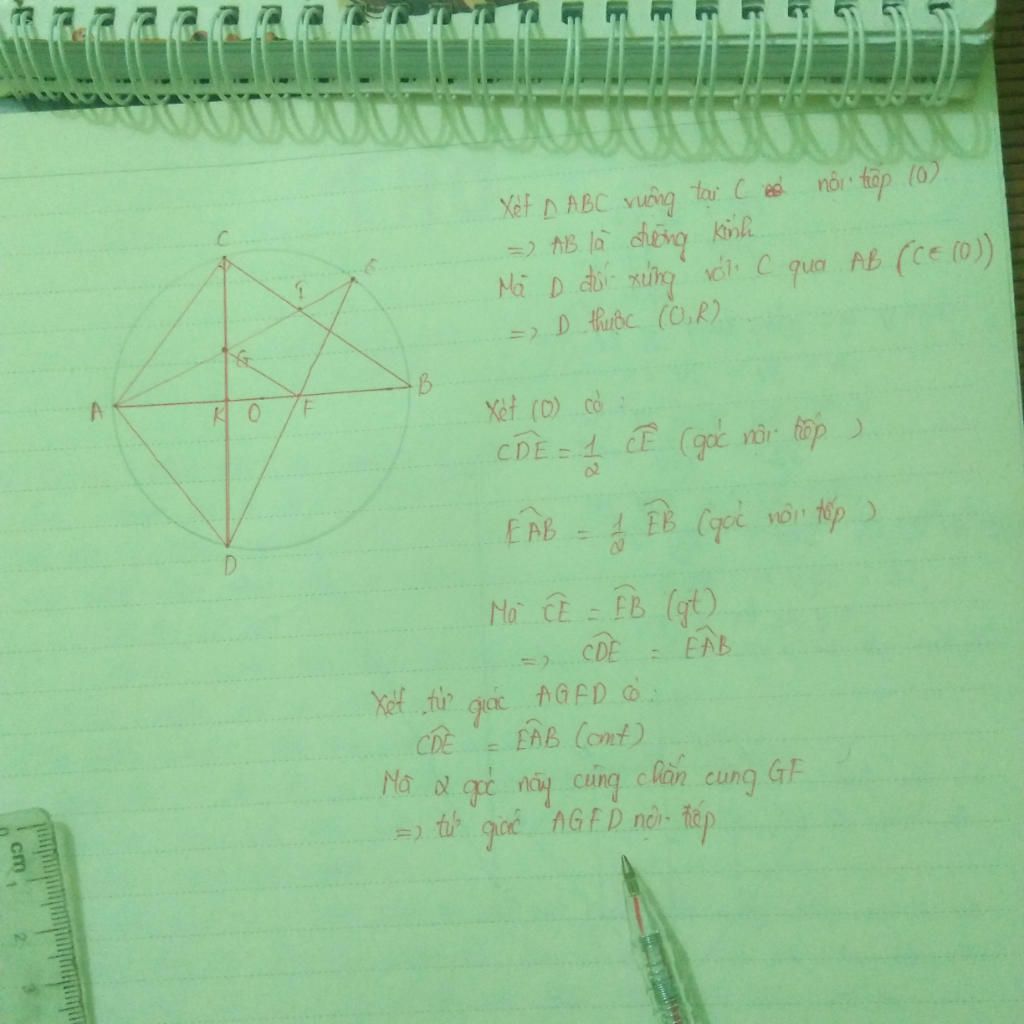 C
E
I
G
A
K
O
F
B
D
Xét Δ ABC vuông tại C có nội tiếp (O)
=> AB là đường kính
Mà D đối xứng với C qua AB (C ∈ (O))
=> D thuộc (O,R)
Xét (O) có :
CDE = 1/2 CE (góc nội tiếp )
EAB = 1/2 EB (góc nội tiếp )
Mà CE = EB (gt)
=> CDE = EAB
Xét tứ giác AGFD có :
CDE = EAB (cmt)
Mà 2 góc này cùng chắn cung GF
=> tứ giác AGFD nội tiếp
0 cm
1
2
3